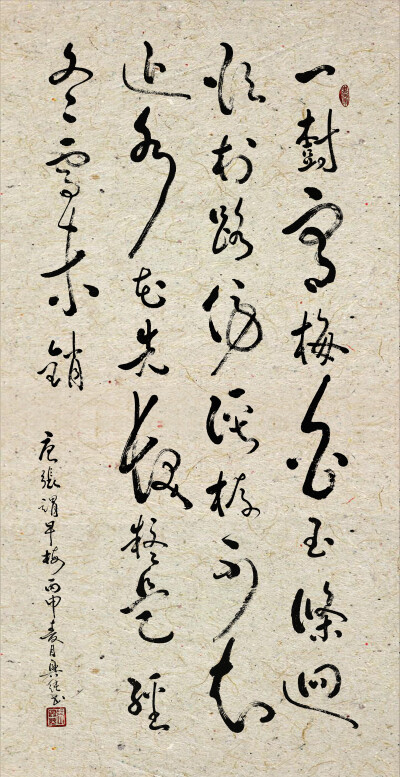 一樹寒梅白玉條迥
臨村路傍溪橋不知
近水花先發疑是經
冬雪未銷
唐張謂早梅丙申